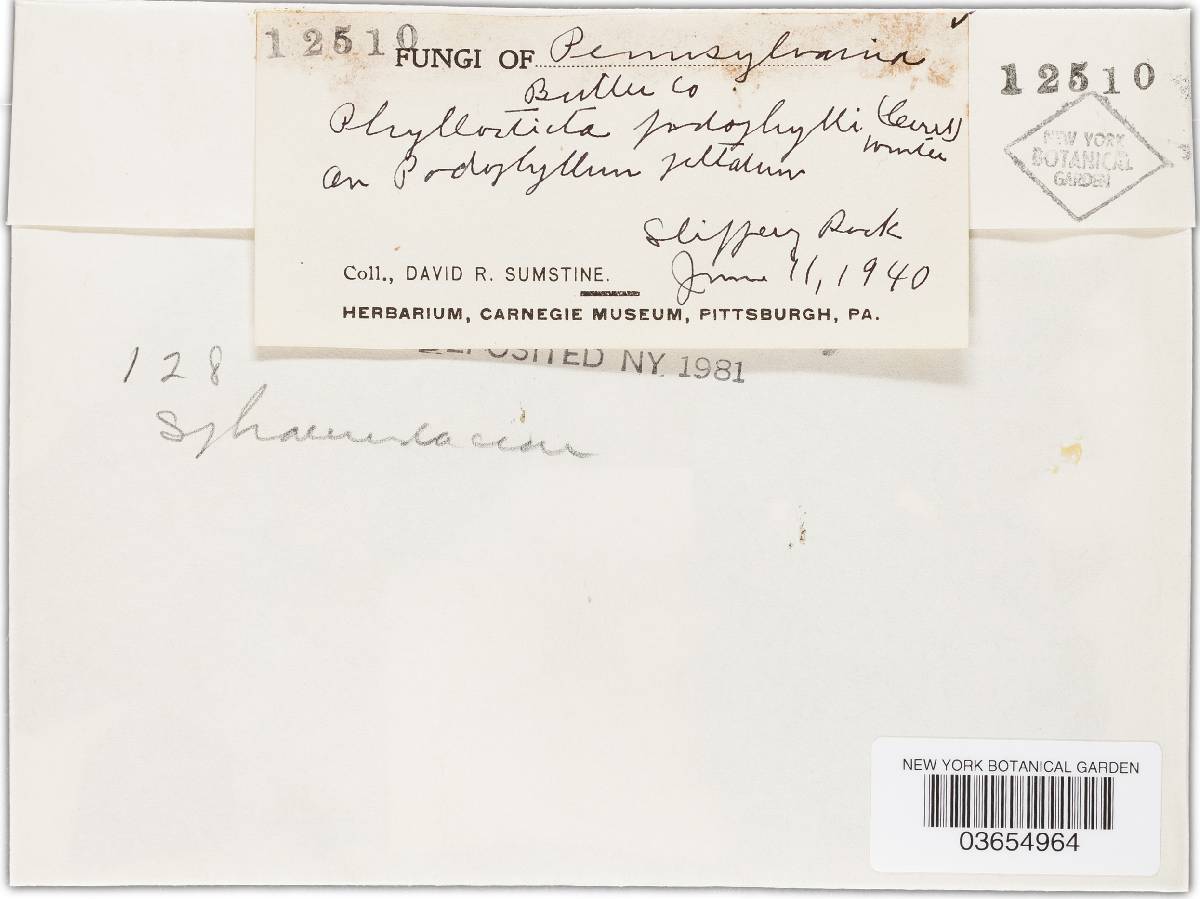 12510
FUNGI OF Pennsylvania
Butler Co
Phyllosticta podophylli (Curt)
Winter
on Podophyllum peltatum
Slippery Rock
Coll., DAVID R. SUMSTINE.
June 11, 1940
HERBARIUM, CARNEGIE MUSEUM, PITTSBURGH, PA.
12510
NEW YORK
BOTANICAL
GARDEN
DEPOSITED NY 1981
128
NEW YORK BOTANICAL GARDEN
03654964